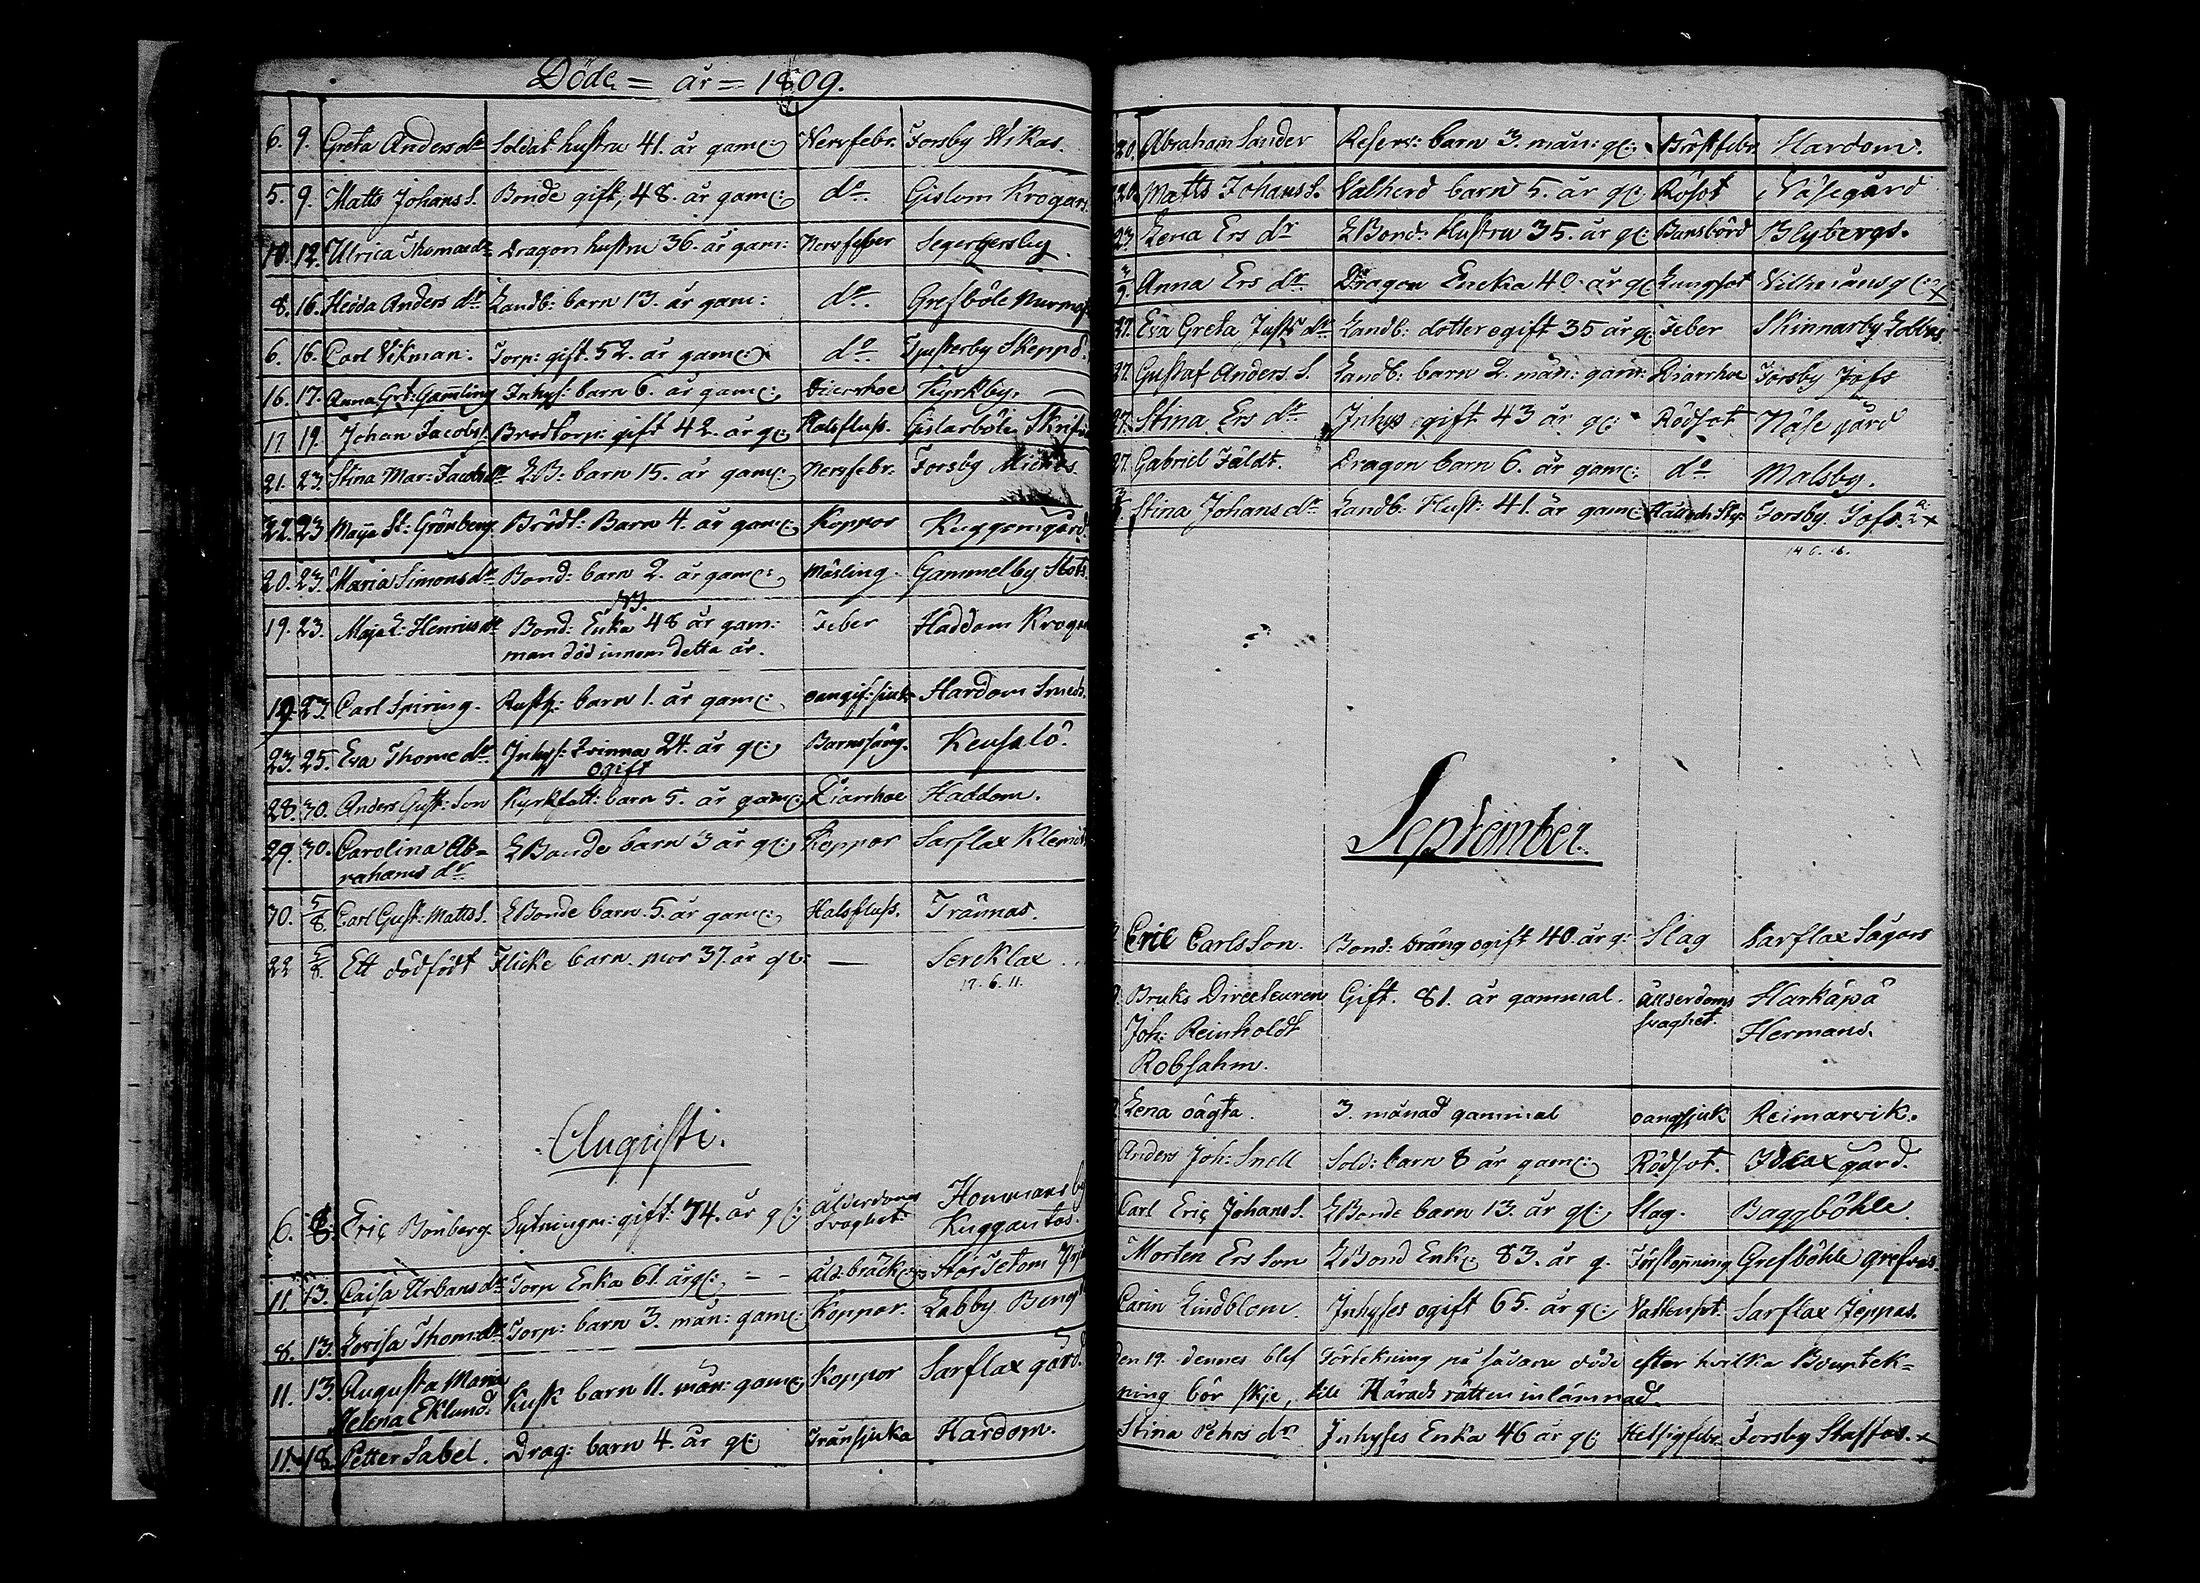 Döde = år = 1809.
6. 9. Greta Andersdr Soldat hustru 41. år gaml: Nervfebr. Forsby Wikas.
5. 9. Matts Johans S. Bonde gift, 48. år gaml: do Gislom Krogars
10. 12. Ulrica Thomasdr Dragon hustru 36. år gam: Nervfeber Segersby.
8. 16. Hedda Anders dr Landb: barn 13. år gam: do. Grefböle
6. 16. Carl Vikman. Torp: gift. 52. år gaml: do Tjusterby Skeppd.
16. 17. Anna Grt: Gamling Inhys: barn 6. år gaml: Diarrhoe Kyrkby.
17 19. Johan Jacobs S. Brodtorp: gift 42. år gl: Halsfluss. Gislarböle
21. 23. Stina Mar: Jacobsdr LB: barn 15. år gaml: Nervfebr. Forsby Mickos
22. 23 Maja St: Grönberg Brödt: Barn 4. år gaml: Koppor Kuggomgård.
20. 23. Maria Simonsdr Bond: barn 2. år gaml: Mäsling. Gammelby Stots.
19. 23. Maja L: Henricsdr Bond: Enka 48 år gam: Feber Haddom Krogars
man död innom detta år.
19. 23. Carl Spiring. Rustg: barn 1. år gaml: oangif: siukd: Hardom Smeds.
23. 25. Eva Thome dr Inhys: Qvinna 24. år gl: Barnsäng. Keusalö.
ogift
28. 30. Anders Gust: Son Kyrkfatt: barn 5. år gaml: Diarrhoe Haddom.
29. 30. Carolina Ab= LBonde barn 3 år gl: Koppor Sarflax Klemets
rahams dr
30. 5/8. Carl Gust: Matts S. LBonde barn. 5. år gaml: Halsfluss. Trännas.
22 5/8. Ett dödfödt Flicke barn. mor 37. år gl: — Sereklax
17. 6. 11.
Augusti.
6. 8. Eric Bomberg. Sytningm: gift. 74. år gl: Ålderdoms Hommansby
svaghet. Kuggantas.
11 13. Caisa Urbansdr Torp Enka 61. år gl: - - Åld: bräckl: Stor Setom
8. 13. Lovisa Thom: dr Torp: barn 3. mån: gaml: Koppor. Labby Bengts
11. 13. Augusta Maria Kusk barn 11. mån: gaml: Koppor Sarflax gård.
Helena Eklund.
11. 18. Petter Sabel. Drag: barn 4. år gl: Tränsjuka Hardom.
20. Abraham Sander Reserv: barn 3. mån: gl: Bröstfebr. Hardom.
20. Matts Johans S. Valherd barn 5. år gl: Rösot Näsegård
23. Lena Ers dr LBond: Hustru 35. år gl: Barnsbörd Blybergs.
Anna Ers dr Dragon Encka 40. år gl: Lungsot
27. Eva Greta Justs dr Landb: dotter ogift 35 år gl: Feber Skinnarby Lobbas.
27. Gustaf Anders. S. Landb: barn 2. mån: gam: Diarrhoe Forsby Jofs
27. Stina Ers dr Inhys ogift 43 år gl: Rödsot Näse gård
27. Gabriel Fäldt. Dragon barn 6. år gaml: do Malsby.
Stina Johans dr Landb: Hust: 41. år gaml: Forsby Jofs.
14. 6. 16.
September.
Eric Carlsson. Bond: dräng ogift 40. år g: Slag Sarflax Sågars
Bruks Directeuren Gift. 81. år gammal. ållserdoms Harkäpä
Joh: Reinholdt svaghet. Hermans.
Robsahm.
Lena oägta. 3. månad gammal oangsjuk Reimarvik.
Anders Joh: Snell Sold: barn 8 år gaml: Rödsot. Idlax gård.
Carl Eric Johans S. LBonde barn 13. år gl: Slag. Baggböhle.
Morten Ers Son LBond Enkl: 83. år g. Förstopning Grefböhle grefvas.
Carin Lindblom. Inhyses ogift 65. år gl: Vattensot. Sarflax Jeppas.
den 19. dennes blef Förtekning på sådane döde efter hvilka Bouptek=
ning bör skje, till Härads rätten inlämnad.
Stina Pehrs dr Inhyses Enka 46 år gl: Hetsigfebr. Forsby Staffas.